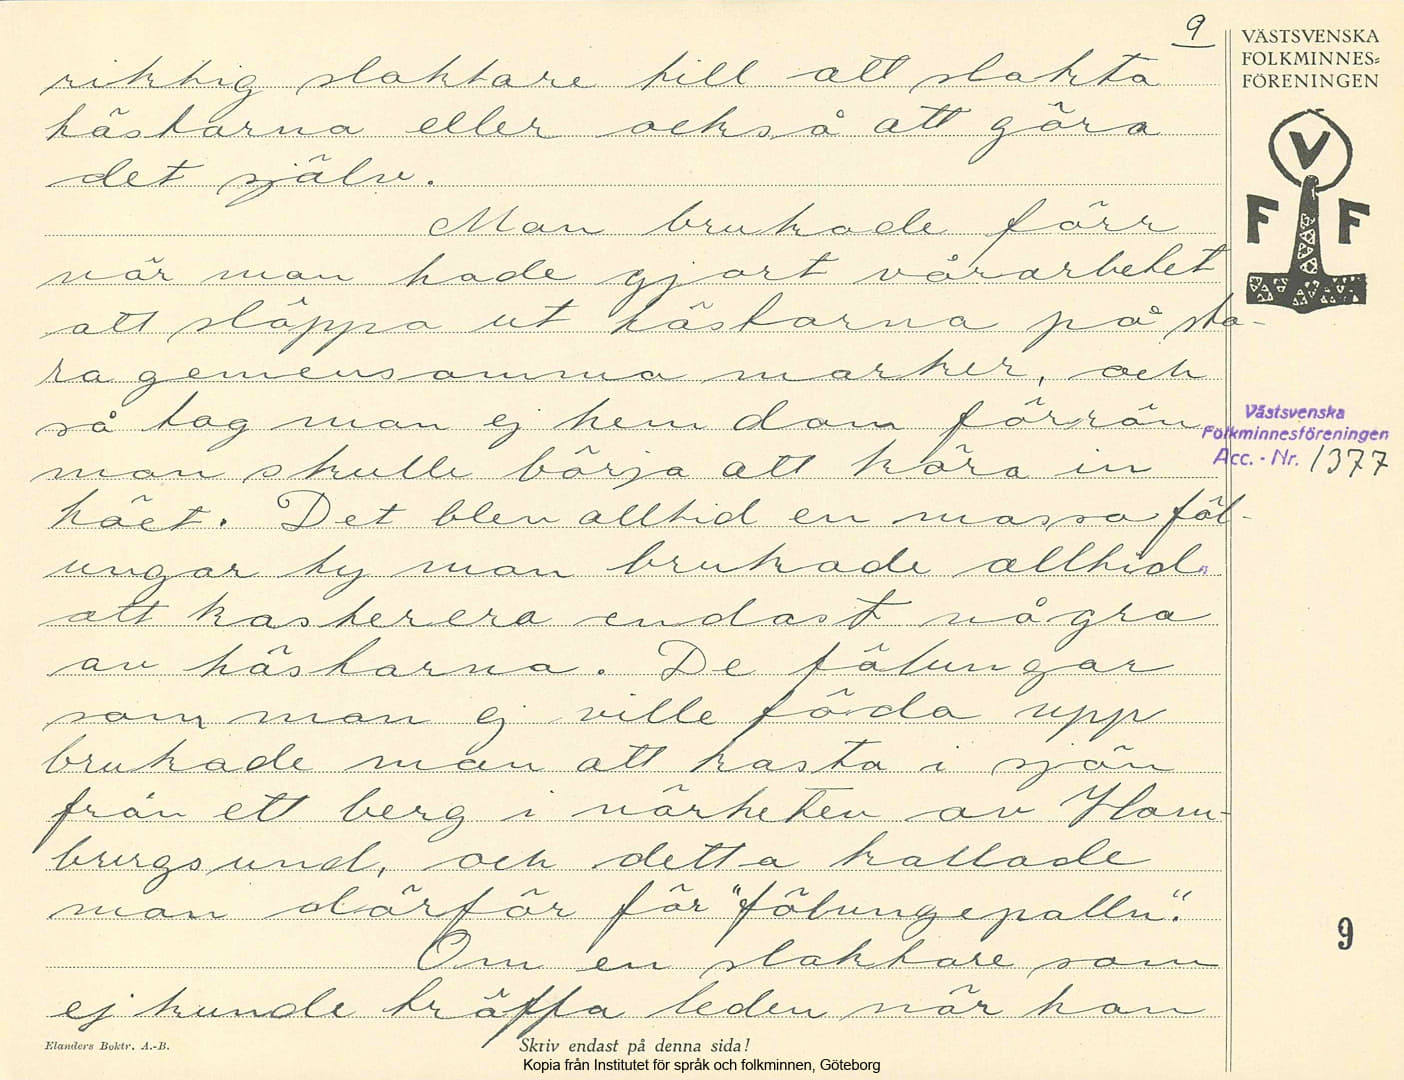 9
VÄSTSVENSKA
FOLKMINNES-
FÖRENINGEN
V
F F
riktig slaktare till att slakta
hästarna eller också att göra
det själv.
Man brukade förr
när man hade gjort vårarbetet
att släppa ut hästarna på sto-
ra gemensamma marker, och
så tog man ej hem dom förrän
man skulle börja att köra in
höet. Det blev alltid en massa föl-
ungar ty man brukade alltid
att kasterera endast några
av hästarna. De fölungar
som man ej ville föda upp
brukade man att kasta i sjön
från ett berg i närheten av Ham-
burgsund, och detta kallade
man därför för "fölungepalln".
Om en slaktare som
ej kunde träffa leden när han
Västsvenska
Folkminnesföreningen
Acc. - Nr. 1377
9
Elanders Boktr. A.-B.
Skriv endast på denna sida!
Kopia från Institutet för språk och folkminnen, Göteborg